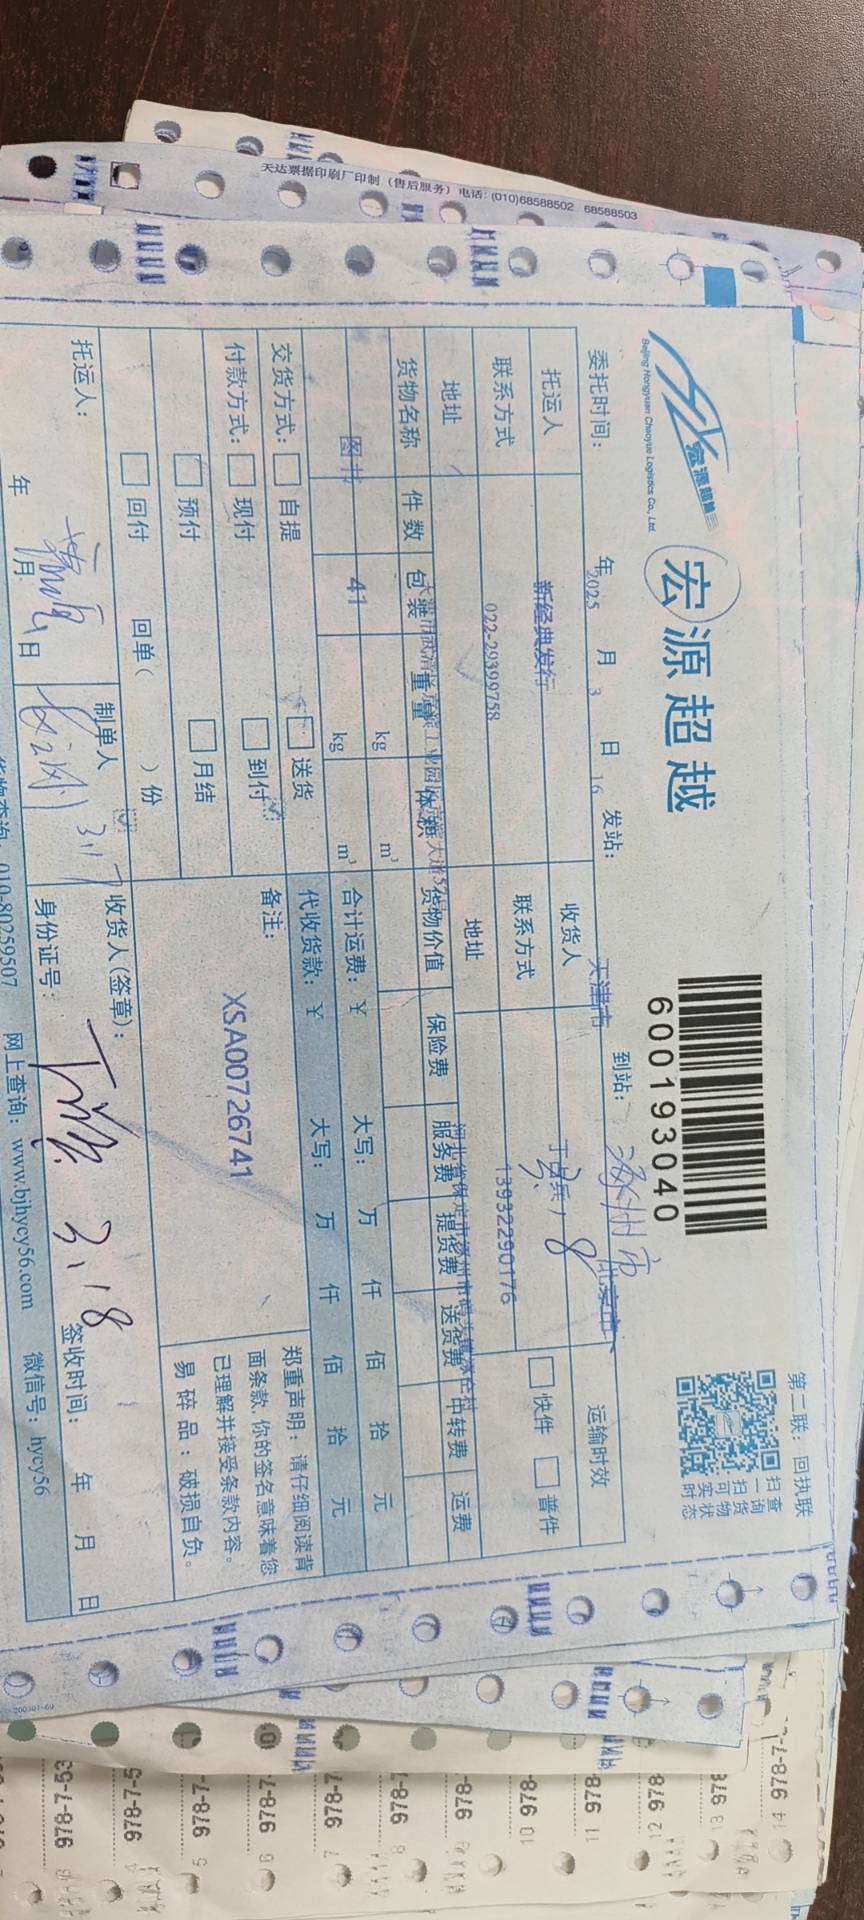 天达票据印刷厂印制（售后服务）电话：(010)68588502 68588503
第二联：回执联
鑫源超越
Beijing Hongyuan Chaoyue Logistics Co., Ltd.
宏源超越
600193040
扫一扫可实时
查询货物状态
委托时间： 2025 年 3 月 16 日 发站： 天津市 到站： 涿州市
托运人 新经典发行 收货人 运输时效
联系方式 022-29399758 联系方式 13932290176 快件 普件
地址 地址
货物名称 件数 包装 重量 体积 货物价值 保险费 服务费 提货费 送货费 中转费 运费
kg m³
图书 41 kg m³ 合计运费：￥ 大写： 万 仟 佰 拾 元
交货方式： 自提 送货 代收货款：￥ 大写： 万 仟 佰 拾 元
付款方式： 现付 到付 备注：
预付 月结 XSA00726741
回付 回单（ ）份
郑重声明：请仔细阅读背
面条款，你的签名意味着您
已理解并接受条款内容。
易碎品：破损自负。
托运人： 制单人 3.17 收货人(签章)： 3.18
年 月 日 身份证号： 签收时间： 年 月 日
货物查询：010-80259507 网上查询：www.bjhycy56.com 微信号：hycy56